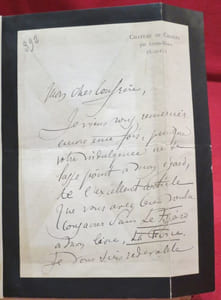 393
Mon cher Confrère,
Je viens vous remercier
encore une fois, puisque
votre indulgence ne se
lasse point à mon égard,
de l'excellent article
que vous avez bien voulu
consacrer dans Le Figaro
à mon livre, La Force.
Je vous suis redevable